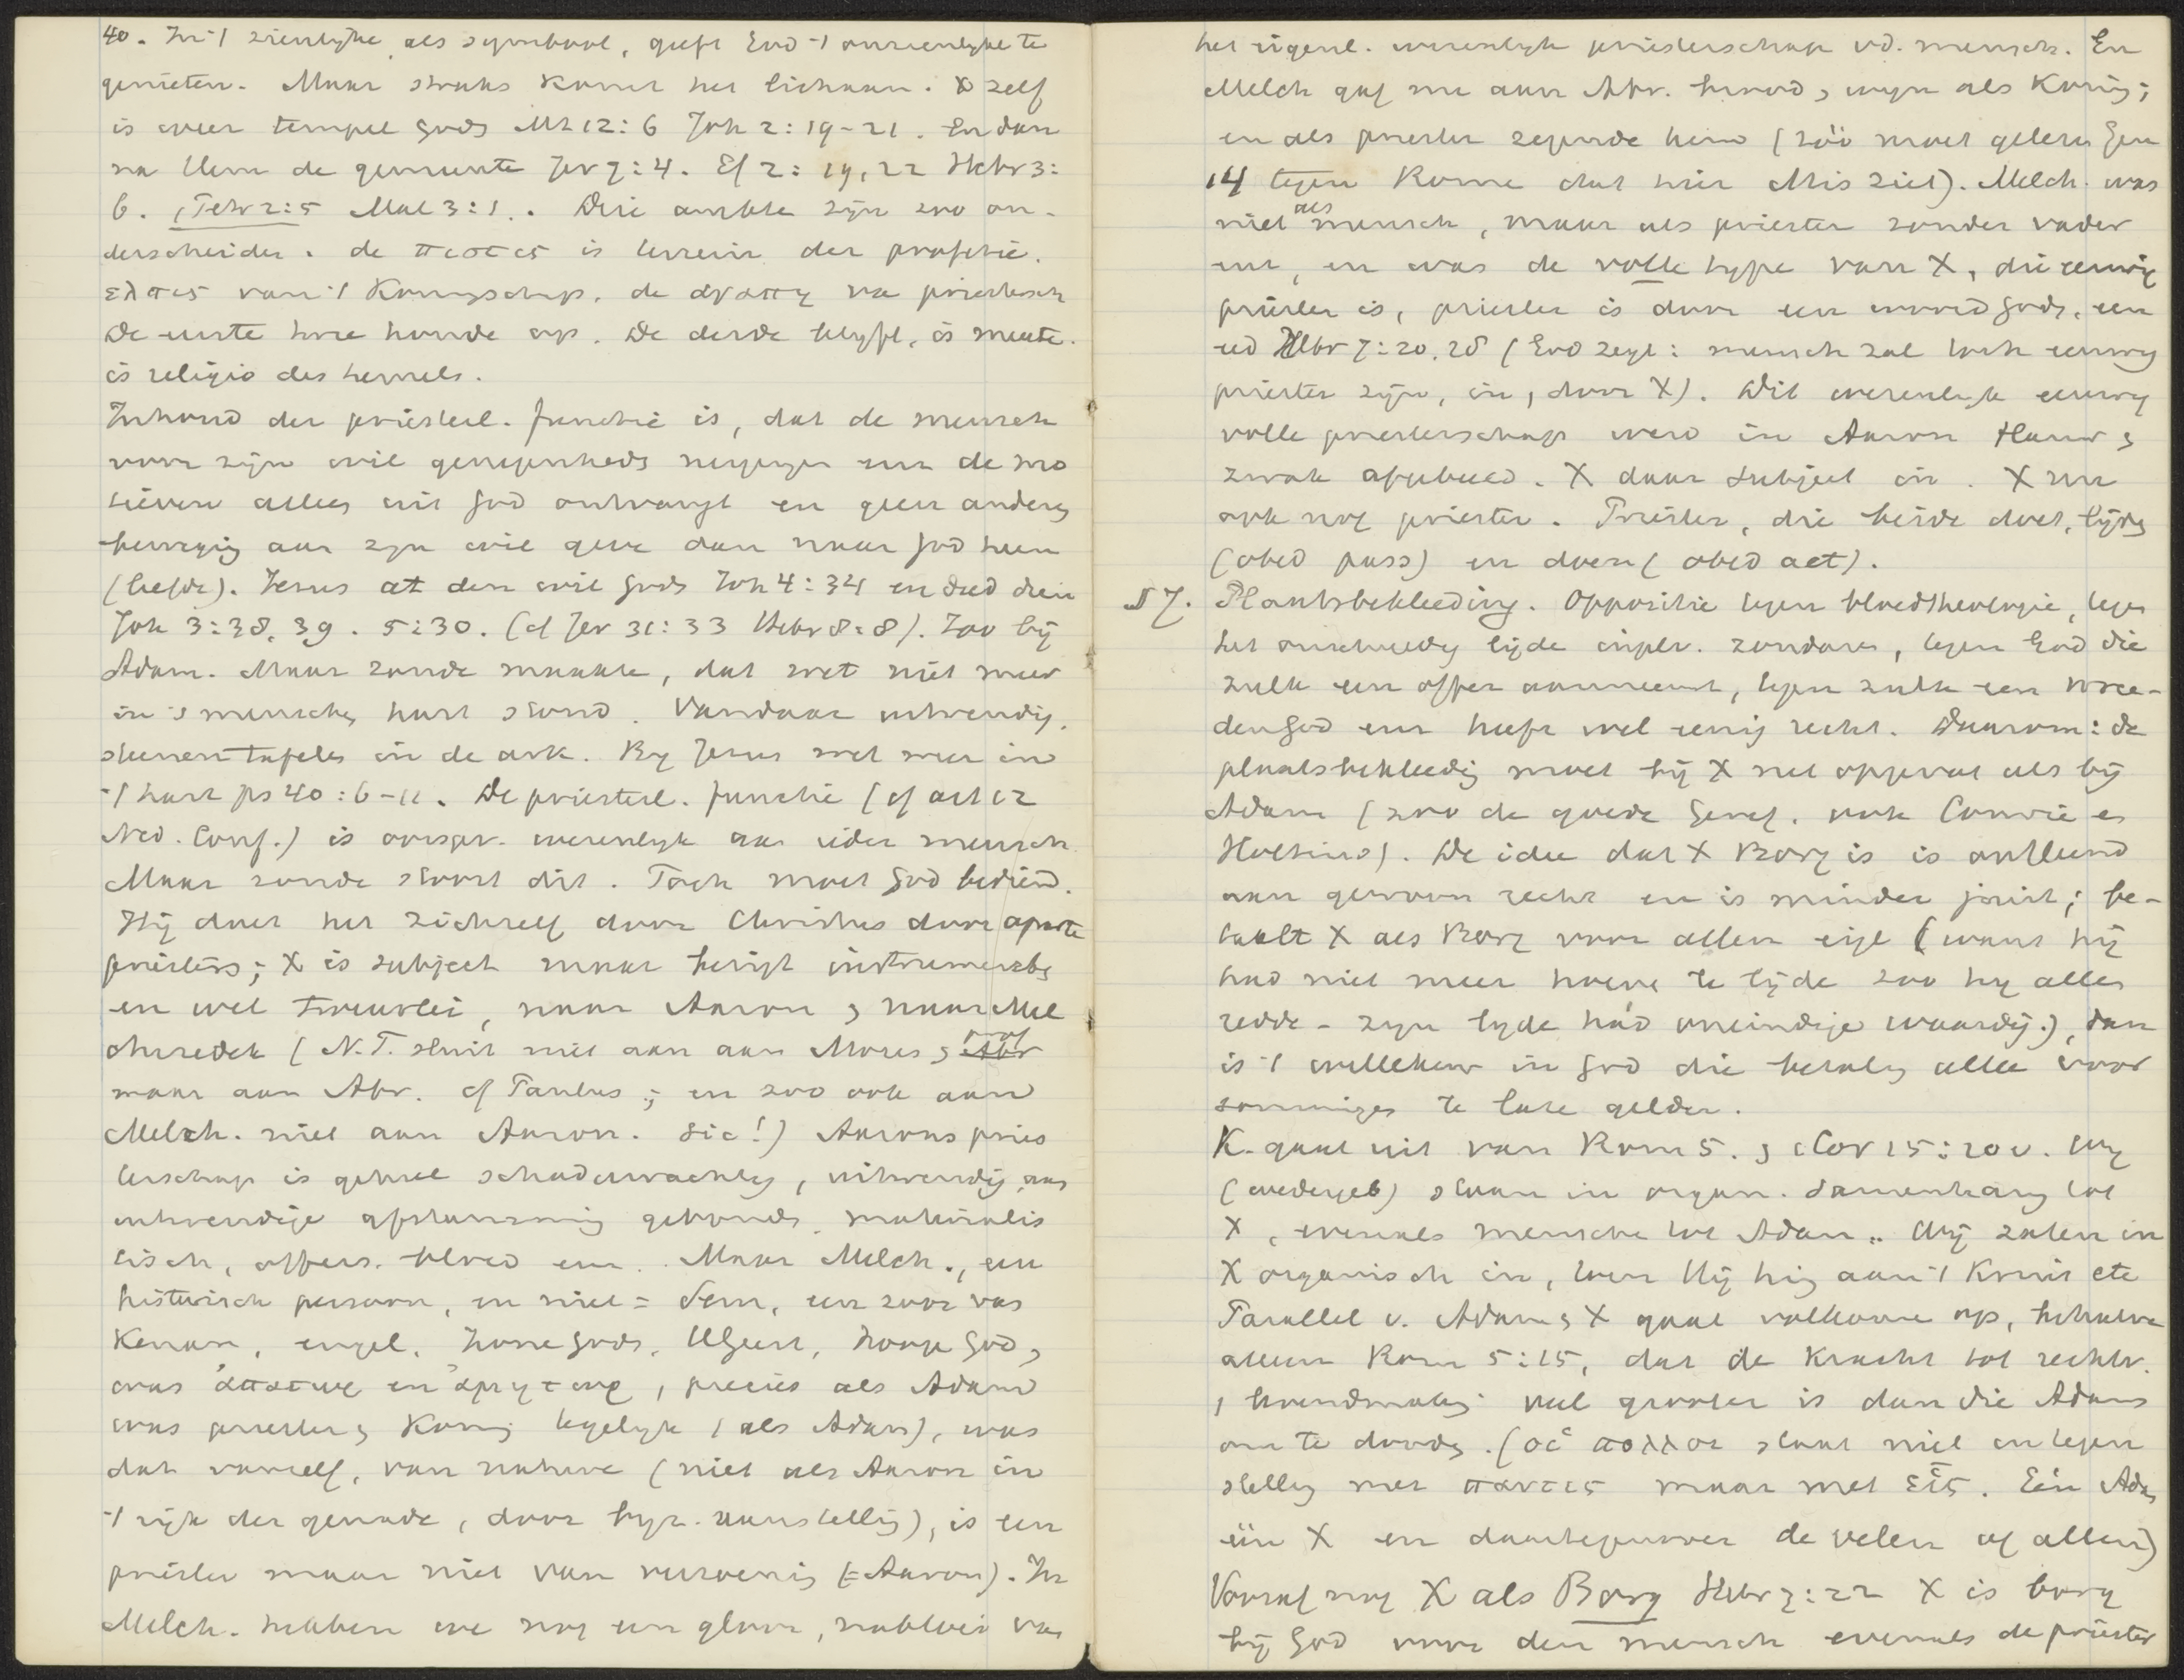 40. In 't zienlijke als symbool, geeft God 't onzienlijke te
genieten. Maar straks komt het lichaam. X zelf
is weer tempel Gods Mt 12:6 Joh 2:19-21. En dan
na Hem de gemeente Jer 7:4. Ef 2:19,22 Hebr 3:
6. 1 Petr 2:5 Mal 3:1. Drie ambte zijn zoo on-
derscheiden. de πιστις is terrein der profetie.
ελπις van 't Koningschap, de αγαπη va priestersch
De eerste twee houde op. De derde blijft, is meeste.
is religio des hemels.
Inhoud der priesterl. functie is, dat de mensch
voor zijn wil genegenheds neigingen enz de mo
tieven alles uit God ontvangt en geen anderes
beweging aan zyn wil geve dan naar God heen
(liefde). Jezus at den wil Gods Joh 4:34 en deed dien
Joh 3:38,39. 5:30. (cf Jer 31:33 Hebr 8:8). Zoo bij
Adam. Maar zonde maakte, dat wet niet meer
in 's menschen hart stond. Vandaar uitwendig.
steenen tafelen in de ark. By Jezus wet weer in
't hart ps 40:6-11. De priesterl. functie (cf art 12
Ned. Conf.) is oorspr. wezenlyk aan ieder mensch
Maar zonde stoort dit. Toch moet God bediend.
Hij doet het zichzelf door Christus door aparte
priesters; X is subject maar bezigt instrumenten
en wel tweeerlei, naar Aaron & naar Mel
chizedek (N.T. sluit niet aan aan Mozes &
maar aan Abr. cf Paulus; en zoo ook aan
Melch. niet aan Aaron. Sic!) Aarons pries
terschap is geheel schaduwachtig, uitwendig, aan
uitwendige afstamming gebonden, materialis
tisch, offers. bloed enz. Maar Melch., een
historisch persoon, en niet = Sem, een zoon van
Kenan, engel, Zone Gods, H Geest, Hooge God,
was ἀπατωρ en ἀμητωρ, precies als Adam
was priester & Koning tegelijk (als Adam), was
dat vanzelf, van nature (niet als Aaron in
't rijk der genade, door byz. aanstelling), is een
priester maar niet van verzoening (= Aaron). In
Melch. hebben we nog een glans, nabloei van
het eigenl. wezenlijk priesterschap v.d. mensch. En
Melch gaf nu aan Abr. brood & wijn als Koning;
en als priester zegende hem (zóó moet gelezen Gen
14 tegen Rome dat hier Mis ziet). Melch. was
niet als mensch, maar als priester zonder vader
enz, en was de volle type van X, die eeuwig
priester is, priester is door een woord Gods, een
eed Hebr 7:20,28 (God zegt: mensch zal toch eeuwig
priester zijn, in, door X). Dit wezenlijk eeuwig
volle priesterschap werd in Aaron flauw &
zwak afgebeeld. X daar subject in. X nu
ook nog priester. Priester, die beide doet, lijden
(obed pass) en doen (obed act).
§ 7. Plaatsbekleeding. Oppositie tegen bloedtheologie, tegen
het onschuldig lijde inplv. zondaren, tegen God die
zulk een offer aanneemt, tegen zulk een wree-
den God enz heeft wel eenig recht. Daarom: de
plaatsbekleeding moet bij X net opgevat als bij
Adam (zoo de goede Geref. ook Comrie en
Holtius). De idee dat X Borg is is ontleend
aan gewoon recht en is minder juist; be-
taalt X als Borg voor allen eigl (want hij
had niet meer hoeve te lijde zoo hij allen
redde - zijn lyde hád oneindige waardij.), dan
is 't willekeur in God die betaling alleen voor
sommigen te late gelden.
K. gaat uit van Rom 5. & 1 Cor 15:20 v. Wij
(wedergeb) staan in organ. samenhang tot
X, evenals mensche tot Adam. Wij zaten in
X organisch in, toen Hij hing aan 't Kruis etc
Parallel v. Adam & X gaat volkome op, behalve
alleen Rom 5:15, dat de kracht tot rechtv.
, levendmaking veel grooter is dan die Adams
om te dooden. (οἱ πολλοι staat niet in tegen
stelling met παντες maar met εἷς. Eén Adam
één X en daartegenover de velen of allen)
Vooraf nog X als Borg Hebr 7:22 X is borg
bij God voor den mensch evenals de priester